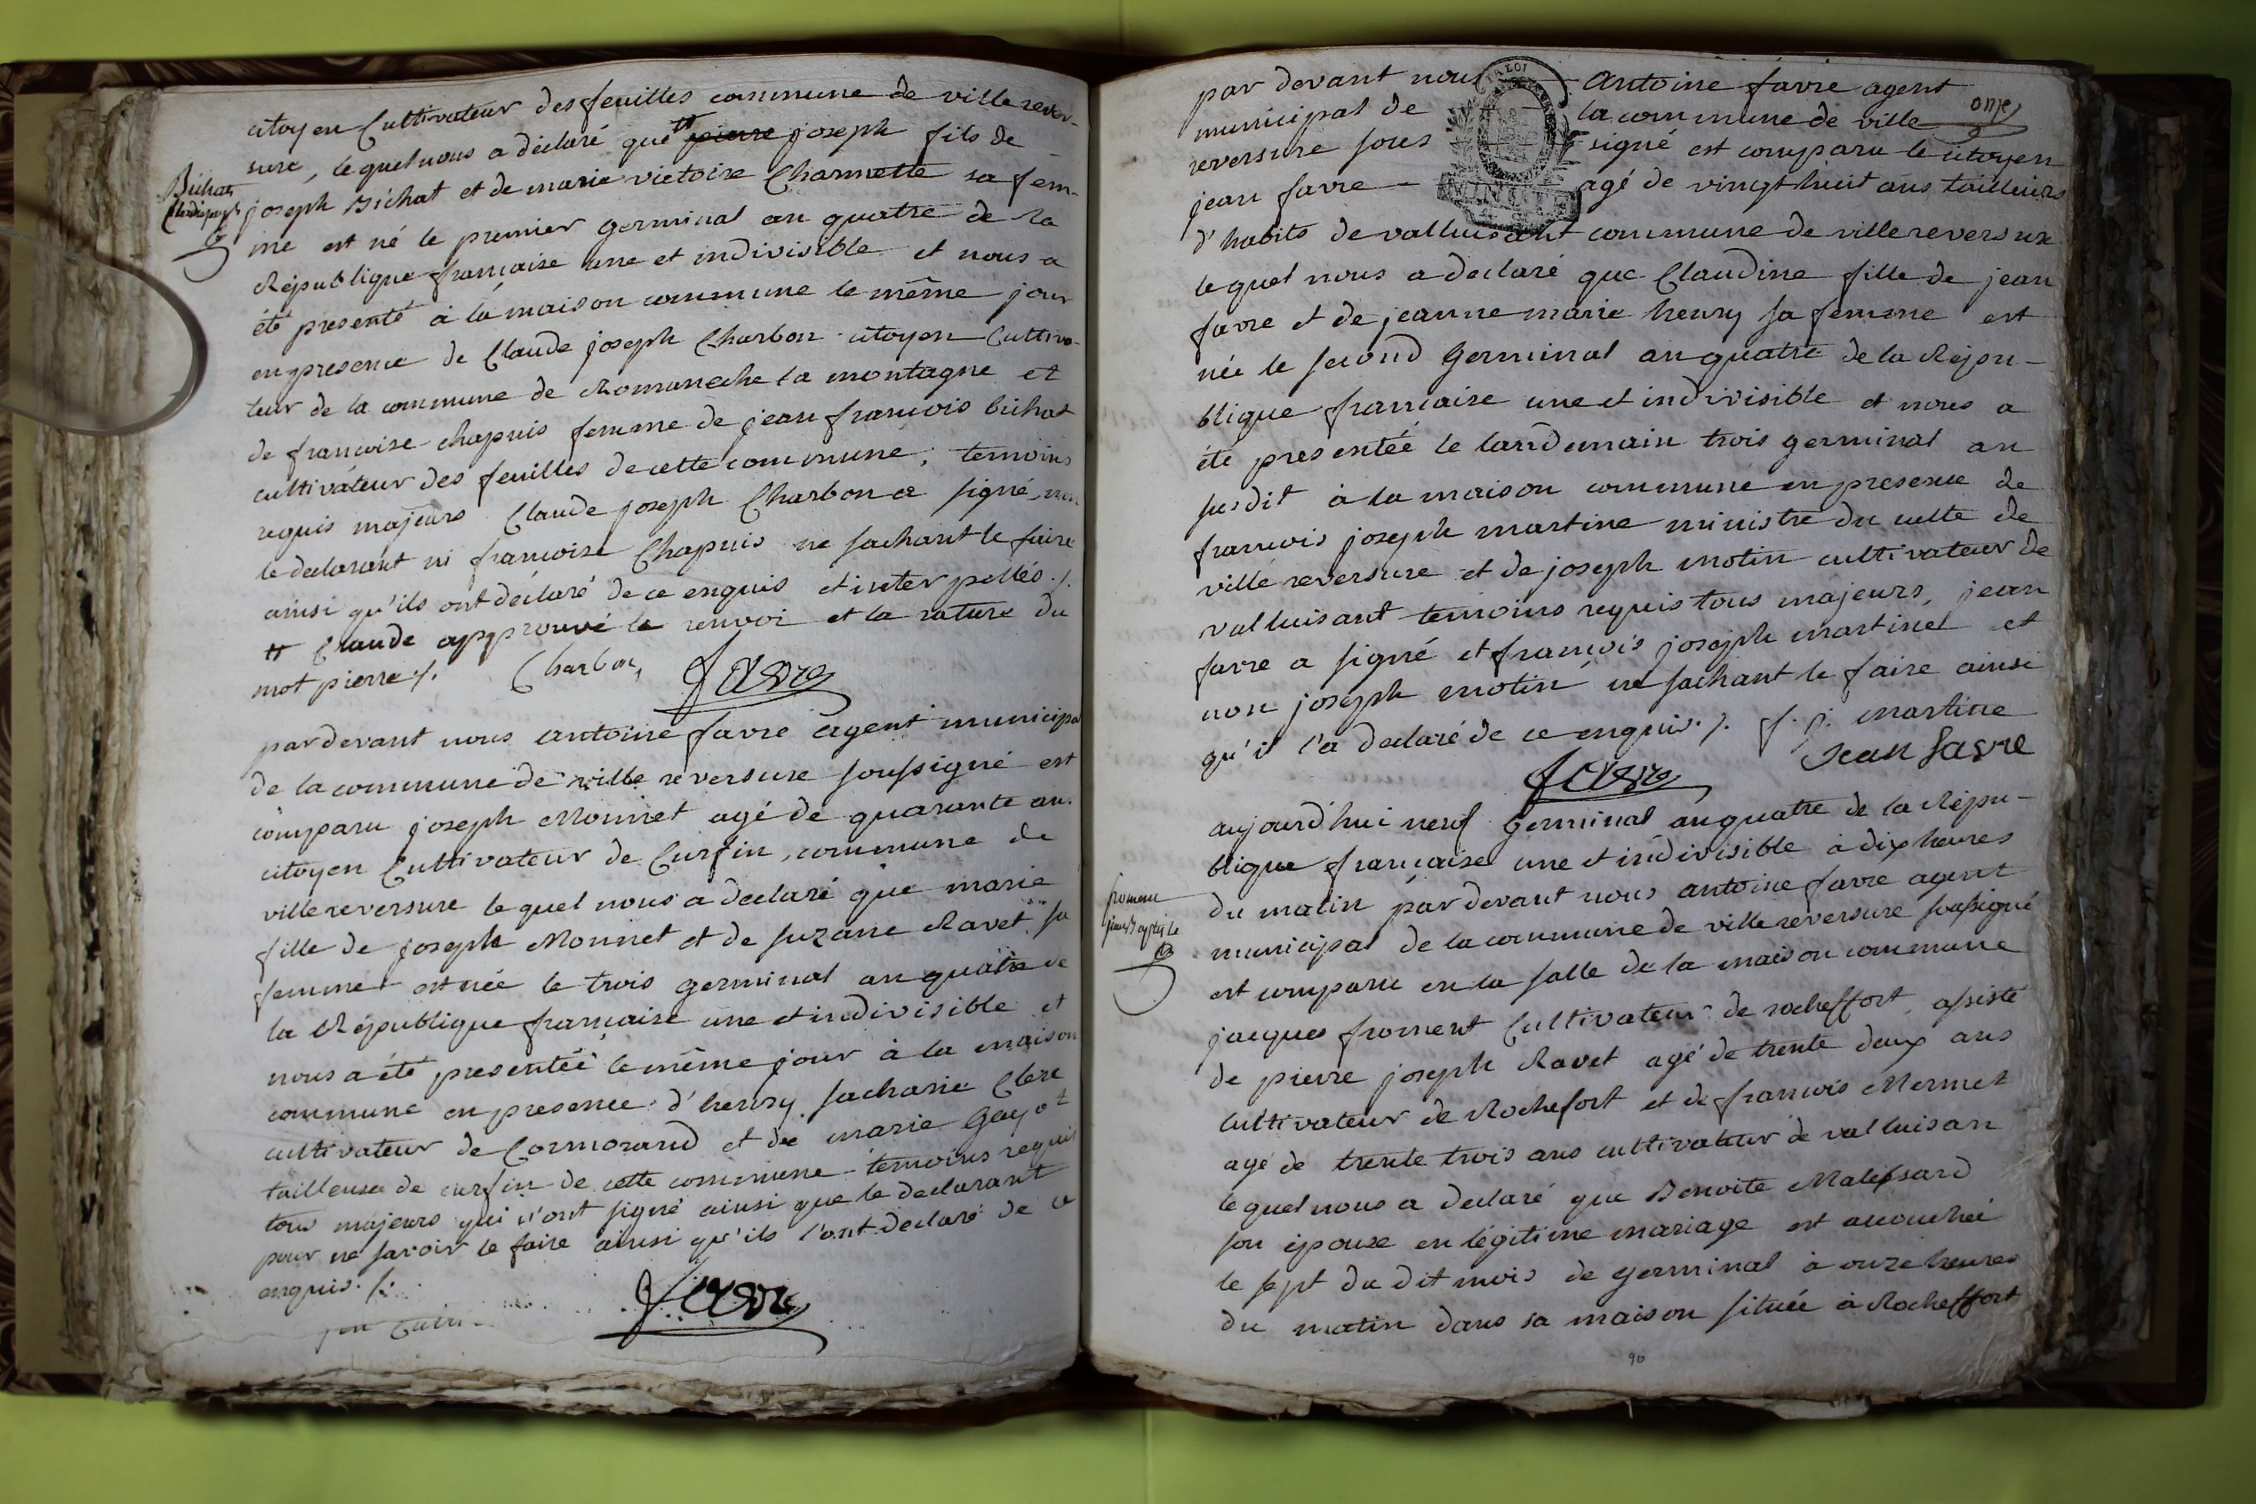 citoyen Cultivateur des feuilles commune de ville rever-
sure, lequel nous a déclaré que # pierre joseph fils de
Bichat
Claude joseph
joseph Bichat et de marie victoire Charmette sa fem-
me est né le premier germinal an quatre de la
République française une et indivisible et nous a
été presenté à la maison commune le même jour
en presence de Claude joseph Charbon citoyen Cultiva-
teur de la commune de Romaneche la montagne et
de francoise chapuis femme de jean francois bichat
cultivateur des feuilles de cette commune, temoins
requis majeurs Claude joseph Charbon a signé, non
le declarant ni francoise Chapuis ne sachant le faire
ainsi qu'ils ont déclaré de ce enquis et interpellés ./.
# Claude appprouvé le renvoi et la rature du
mot pierre ./. Charbon, favre
pardevant nous antoine favre agent municipa
de la commune de ville reversure soussigné est
comparu joseph Monnet agé de quarante an.
citoyen Cultivateur de Cursin, commune de
ville reversure lequel nous a declaré que marie
fille de joseph Monnet et de suzane Ravet sa
femme est née le trois germinal an quatre de
la République française une et indivisible et
nous a été presentée le même jour à la maison
commune en presence d'henry sacharie Clerc
cultivateur de Cormorand et de marie gayot
tailleuse de cursin de cette commune temoins requis
tous majeurs qui n'ont signé ainsi que le declarant
pour ne savoir le faire ainsi qu'ils l'ont declaré de ce
enquis ./.
favre
par devant nous antoine favre agent
municipal de la commune de ville
onze
reversure sous signé est comparu le citoyen
jean favre - agé de vingt huit ans tailleurs
d'habits de valluisant commune de ville reversure
lequel nous a declaré que Claudine fille de jean
favre et de jeanne marie henry sa femme est
née le second Germinal an quatre de la Répu-
blique française une et indivisible et nous a
été presentée le landemain trois germinal an
susdit à la maison commune en presence de
francois joseph martine ministre du culte de
ville reversure et de joseph motin cultivateur de
valluisant temoins requis tous majeurs, jean
favre a signé et françois joseph martinet et
non joseph motin ne sachant le faire ainsi
qu'il l'a declaré de ce enquis ./. f. j. martine
favre Jean favre
aujourd'hui neuf Germinal an quatre de la Répu-
blique française une et indivisible à dix heures
du matin pardevant nous antoine favre agent
froment
jean Baptiste
municipal de la commune de ville reversure soussigné
est comparu en la salle de la maison commune
jacques froment Cultivateur de rocheffort, assisté
de pierre joseph Ravet agé de trente deux ans
cultivateur de Rochefort et de francois Mermet
agé de trente trois ans cultivateur de valluisan
lequel nous a declaré que Benoite Malessard
son épouse en légitime mariage est accouchée
le sept du dit mois de germinal à onze heures
du matin dans sa maison située à Rocheffort
90